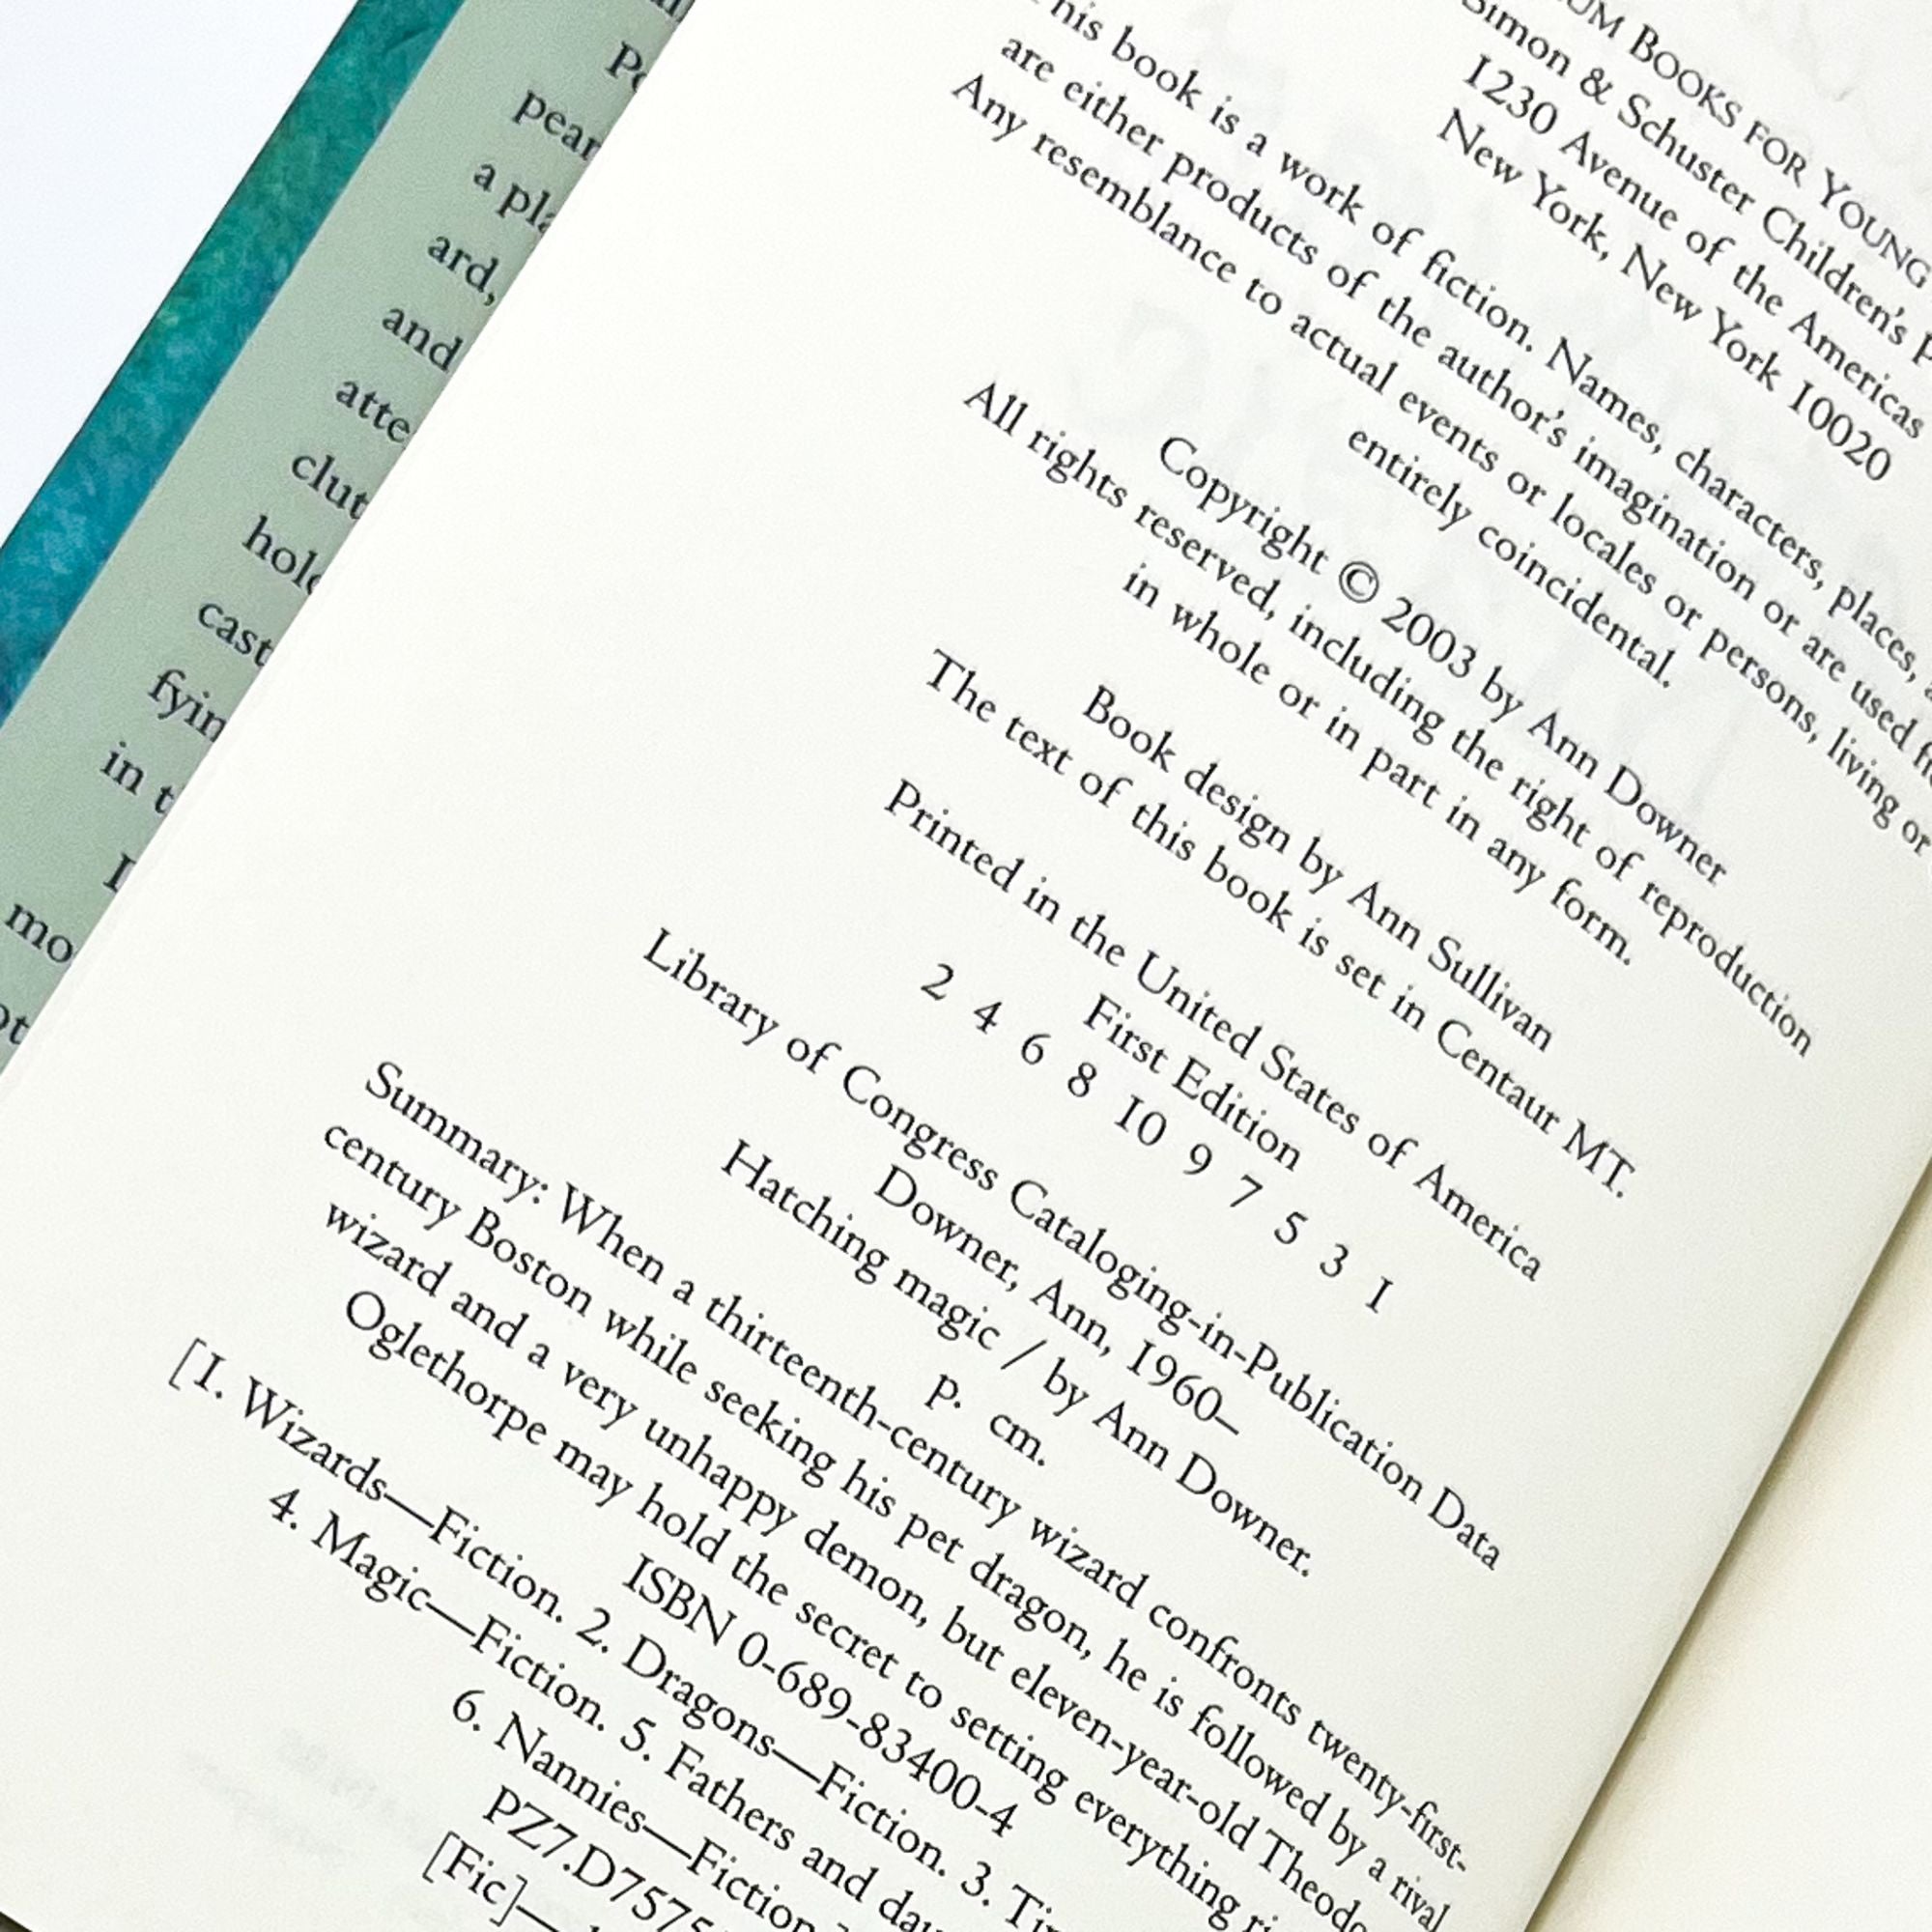 pear
a pla
ard,
and
atte
clut
hold
cast
fyin
in t
mo
UM BOOKS FOR YOUNG
Simon & Schuster Children's P
1230 Avenue of the Americas
New York, New York 10020
This book is a work of fiction. Names, characters, places,
are either products of the author's imagination or are used fi
Any resemblance to actual events or locales or persons, living or
entirely coincidental.
Copyright © 2003 by Ann Downer
All rights reserved, including the right of reproduction
in whole or in part in any form.
Book design by Ann Sullivan
The text of this book is set in Centaur MT.
Printed in the United States of America
First Edition
2 4 6 8 10 9 7 5 3 1
Library of Congress Cataloging-in-Publication Data
Downer, Ann, 1960–
Hatching magic / by Ann Downer.
p. cm.
Summary: When a thirteenth-century wizard confronts twenty-first-
century Boston while seeking his pet dragon, he is followed by a rival
wizard and a very unhappy demon, but eleven-year-old Theodo
Oglethorpe may hold the secret to setting everything ri
ISBN 0-689-83400-4
[1. Wizards—Fiction. 2. Dragons—Fiction. 3. Tim
4. Magic—Fiction. 5. Fathers and dau
6. Nannies—Fiction
PZ7.D7575
[Fic]—